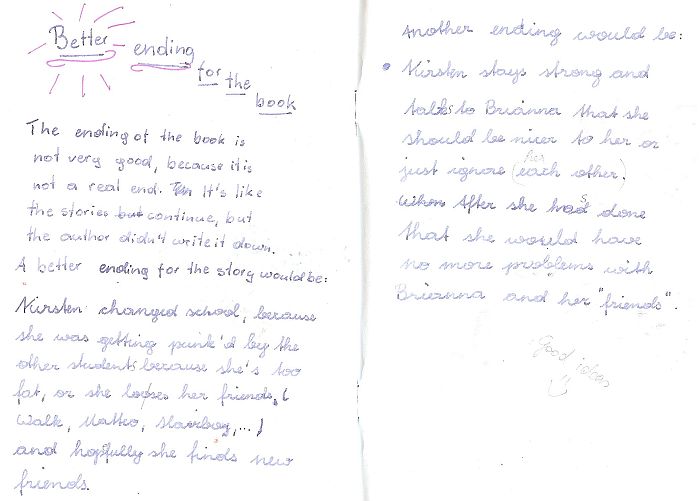 Better
ending
for
the
book
The ending of the book is
not very good, because it is
not a real end. It's like
the stories continue, but
the author didn't write it down.
A better ending for the story would be:
Kirsten changed school, because
she was getting punk'd by the
other students because she's too
fat, or she looses her friends, (
Walk, Matteo, ,...)
and hopfully she finds new
friends.
Another ending would be:
• Kirsten stays strong and
talks to Brianna that she
should be nicer to her or
just ignore (each other).
her
After she has done
that she would have
no more problems with
Brianna and her "friends".
Good ideas